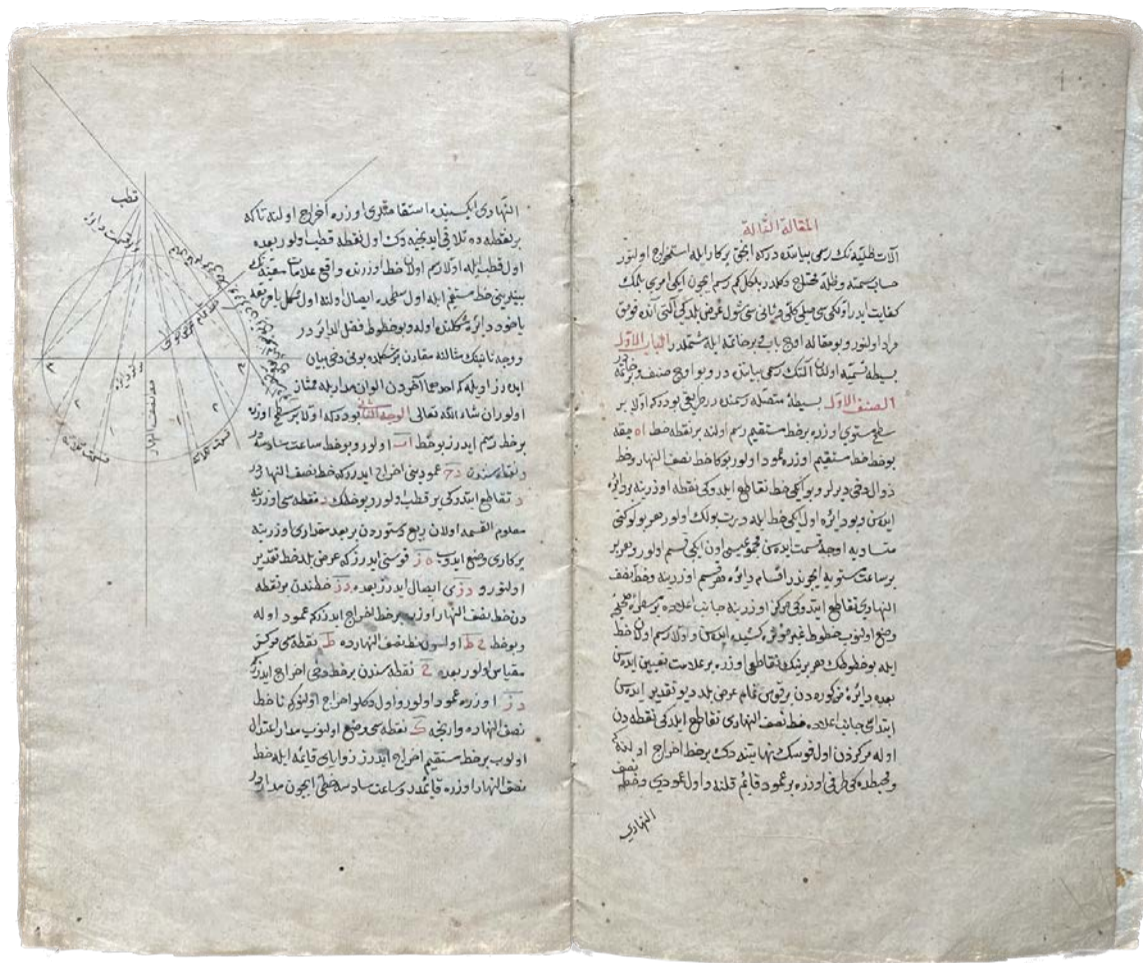 المقالة الثالثة
آلات ظليه نك رسمى بياننده دركه انجق پركار ايله استخراج اولنور
حساب سمته وظله محتاج دكلدر بلكه رسم ايچون ايكى امرى بلمك
كفايت ايدر اولكى ميل كلى ثانى سى شول عرض بلد كه آلتى آنده قومق
مراد اولنور وبو مقاله اوچ باب و بر خاتمه ايله مشتملدر الباب الاول
بسيطه تسميه اولنان آلتك رسمى بياننده در وبو اوچ صنف و بر خاتمه در
الصنف الاول بسيطهٔ متصله رسمنده در طريقى بودركه اولا بر
سطح مستوى اوزره بر خط مستقيم رسم اولنه بر نقطه
بو خط خط مستقيم اوزره عمود اولور بوكا خط نصف النهار وخط
زوال دخى ديرلر وبو ايكى خط تقاطع ايلدوكى نقطه اوزرينه بر دائره
ايده سن وبو دائره اول ايكى خط ايله درت بولك اولور هر بولوكنى
متساويه اوچه قسمت ايده سن مجموعيسى اون ايكى قسم اولور وهر بر
بر ساعت مستويه ايچوندر اقسام دائره هر قسم اوزرينه وخط نصف
النهارى تقاطع ايتدوكى مركز اوزرينه جانب اعلاده بر مسطره
وضع اولنوب خطوط غير مؤثره كشيده ايده سن واولا رسم اولنان خط
ايله بو خطوطك هر برينك تقاطعى اوزره بر علامت تعيين ايده سن
بعده دائرهٔ مذكوره دن بر قوس تمام عرض بلد ديو تقدير ايده سن
ابتداى جانب اعلاده خط نصف النهارى تقاطع ايلدكى نقطه دن
اوله مركزدن اول قوسك نهايتنه دك بر خط اخراج اولنه كه
ومحيطده كى طرفى اوزره بر عمود قائم قلنه واول عمودى وخط نصف
النهارى
النهارى ايكيسنده استقامتلرى اوزره اخراج اولنه تاكه
بر نقطه ده تلاقى ايدنجيه دك اول نقطه قطب اولور بعده
اول قطب ايله اولا رسم اولنان خط اوزرنده واقع علامات معينه نك
بينلرينى خط مستقيم ايله اول سطحده ايصال اولنه اول شكل يا مربعده
ياخود دائره شكلنده اوله وبو خطوط فضل الدائر در
ووجه ثانينك مثالنه مقارن بر شكلده بونى دخى بيان
ايده رز اويله كه احدهما آخردن الوان مدار ايله ممتاز
اولور ان شاء الله تعالى الوجه الثانى بودركه اولا بر سطح اوزره
بر خط رسم ايدرز بو خط اب اولور وبو خط ساعت سادسه در
ونقطه سندن دح عمودينى اخراج ايدرز كه خط نصف النهار در
د تقاطع ايتدكى ير قطب اولور وبو خطك د نقطه سى اوزرينه
معلوم القسمه اولان ربع دستوردن بر بعد مقدارى اوزرينه
پركارى وضع ايدوب ه ز قوسنى ايدرز كه عرض بلد خط تقدير
اولنور و دز ى ايصال ايدرز بعده دز خطندن بر نقطه
دن خط نصف النهار اوزره بر خط اخراج ايدرز كه عمود اوله
وبو خط ح ط اولسون خط نصف النهارده ط نقطه سى مركز
مقياس اولور بعده ح نقطه سندن بر خط دخى اخراج ايدرز كه
دز اوزره عمود اولور واول دكلو اخراج اولنور كه تا خط
نصف النهاره وارنجه ك نقطه سى وضع اولنوب مدار اعتدال
اولوب بر خط مستقيم اخراج ايدرز زواياى قائمه ايله خط
نصف النهار اوزره قائمدرى ساعت سادسه خطى ايچون مدار در
قطب
خط نصف النهار